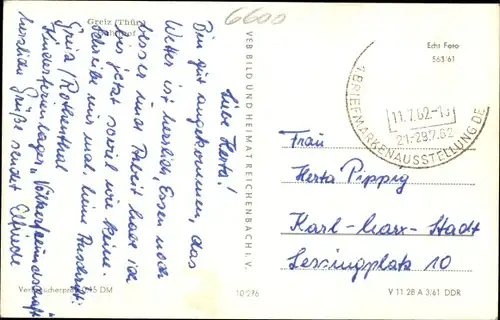 6600
Greiz (Thür.)
Bahnhof
Liebe Herta!
Bin gut angekommen, das
Wetter ist herrlich, Essen noch
besser und Arbeit habe ich
bis jetzt soviel wie keine.
Schreibe mir mal. Meine Anschrift:
Greiz/Rothenthal
Kinderferienlager "Völkerfreundschaft"
herzliche Grüße sendet Elfriede
Verbraucherpreis 0,15 DM
VEB BILD UND HEIMAT REICHENBACH I. V.
10 276
Echt Foto
563/61
BRIEFMARKENAUSSTELLUNG DE
11.7.62-13
21.-29.7.62
Frau
Herta Pippig
Karl-Marx-Stadt
Lessingplatz 10
V 11 28 A 3/61 DDR